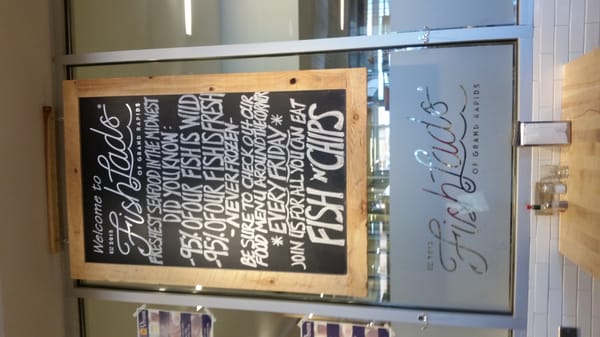 Welcome to
EST. 2013
Fish Lads
OF GRAND RAPIDS
FRESHEST SEAFOOD IN THE MIDWEST
DID YOU KNOW:
-95% OF OUR FISH IS WILD
-95% OF OUR FISH IS FRESH
-NEVER FROZEN-
BE SURE TO CHECK OUT OUR
FOOD MENU AROUND THE CORNER
*EVERY FRIDAY*
JOIN US FOR ALL YOU CAN EAT
FISH 'N' CHIPS
EST. 2013
Fish Lads
OF GRAND RAPIDS